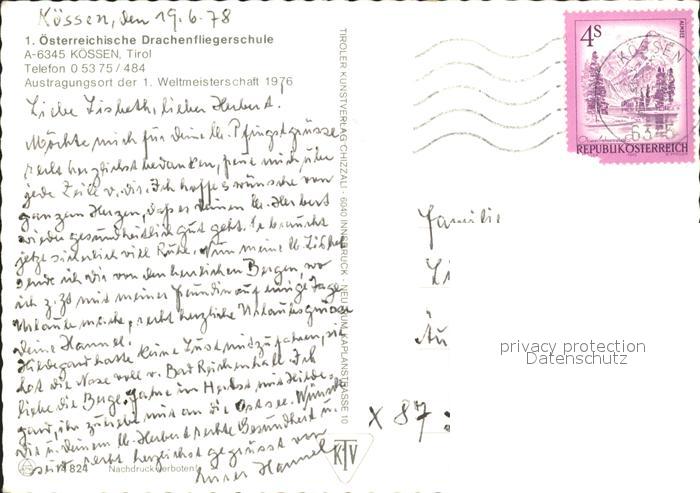 Kössen, den 19.6.78
1. Österreichische Drachenfliegerschule
A-6345 KÖSSEN, Tirol
Telefon 0 53 75 / 484
Austragungsort der 1. Weltmeisterschaft 1976
Liebe Lisbeth, lieber Herbert.
Möchte mich für deine lb. Pfingstgrüsse
recht herzlichst bedanken, freue mich über
jede Zeile v. dir. Ich hoffe & wünsche von
ganzem Herzen, daß es deinem lb. Herbert
wieder gesundheitlich gut geht. Er braucht
jetzt sicherlich viel Ruhe. Nun meine lb. Lisbeth
sende ich dir von den herrlichen Bergen, wo
ich z. Zt mit meiner Freundin auf einige Tage
Urlaub mache, recht herzliche Urlaubsgrüsse
deine Hannel.
Hildegard hatte keine Lust mitzufahren, sie
hat die Nase voll v. Bad Reichenhall. Ich
liebe die Berge. Fahre im Herbst mit Hilde-
gard, ihr zuliebe mit an die Ostsee. Wünsche
dir u. deinem lb. Herbert recht Gesundheit u.
seid recht herzlichst gegrüsst von
Eurer Hannel
824 Nachdruck verboten!
TIROLER KUNSTVERLAG CHIZZALI · 6040 INNSBRUCK · NEU-RUM, KAPLANSTRASSE 10
KTV
4S
ALMSEE
REPUBLIK ÖSTERREICH
KÖSSEN
6345
Familie
Li
Au
X 87
privacy protection
Datenschutz